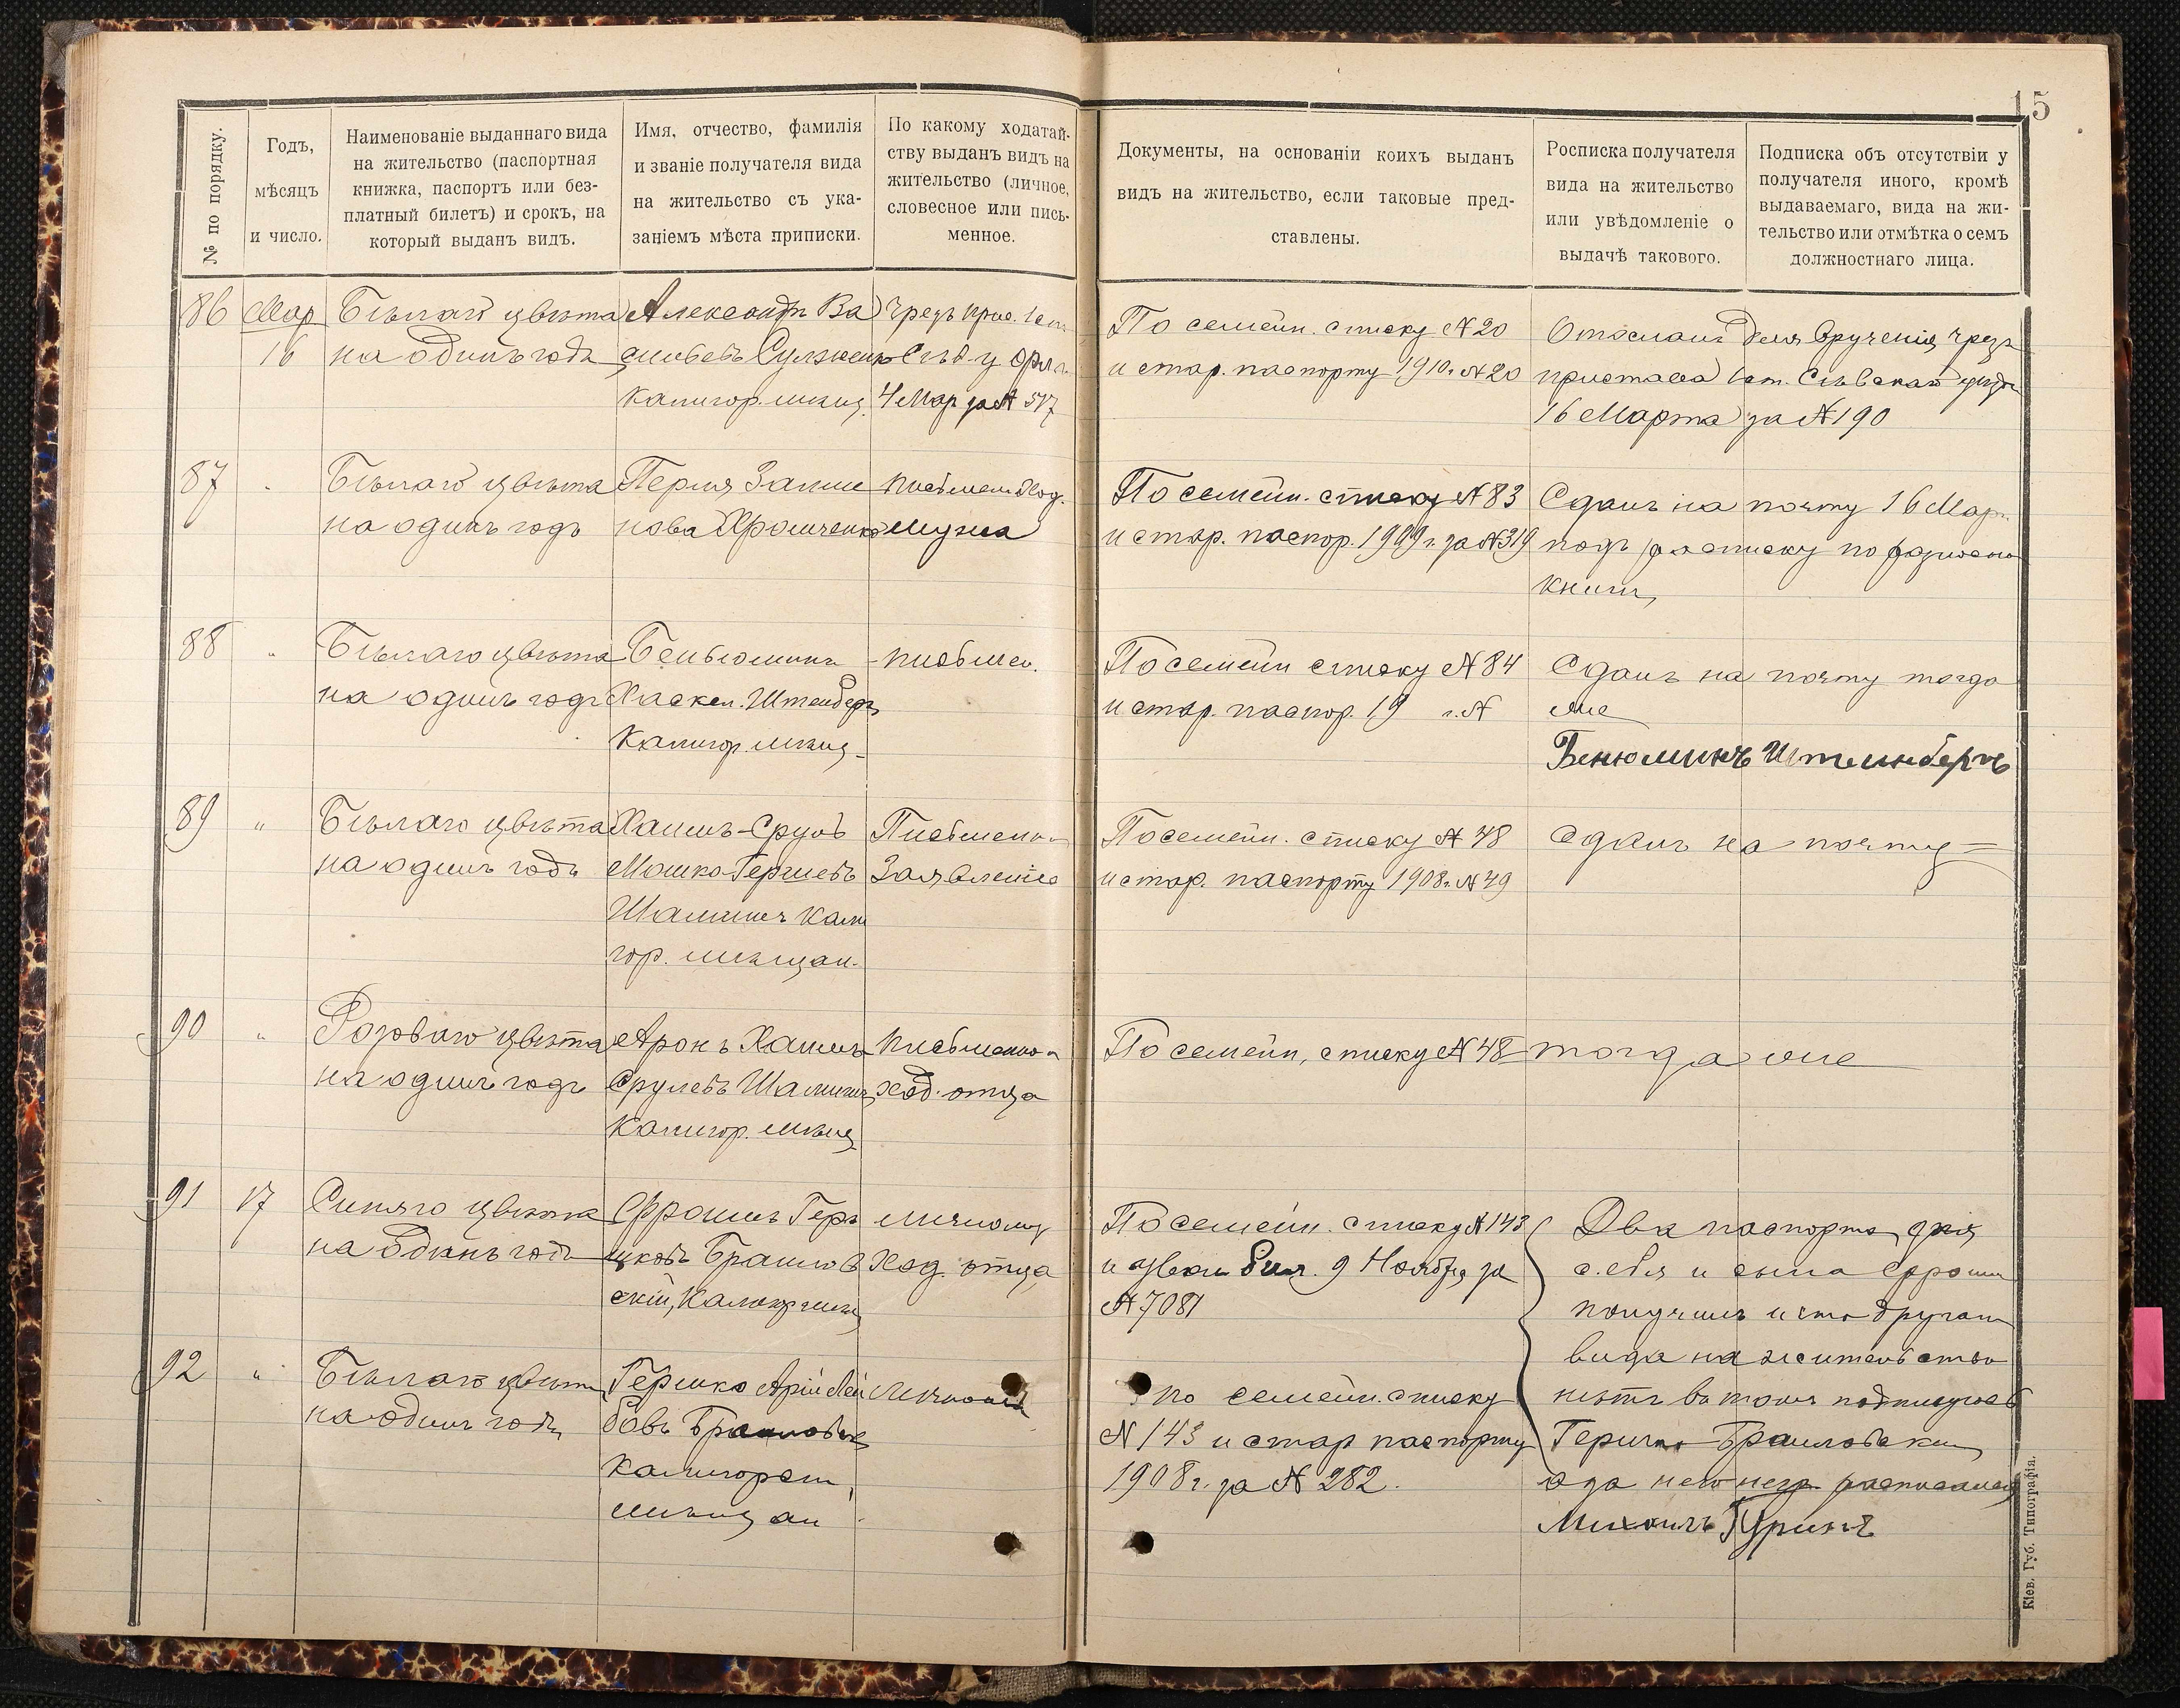 15
№ по порядку.
Годъ,
мѣсяцъ
и число.
Наименованіе выданнаго вида
на жительство (паспортная
книжка, паспортъ или без-
платный билетъ) и срокъ, на
который выданъ видъ.
Имя, отчество, фамилія
и званіе получателя вида
на жительство съ ука-
заніемъ мѣста приписки.
По какому ходатай-
ству выданъ видъ на
жительство (личное,
словесное или пись-
менное.
Документы, на основаніи коихъ выданъ
видъ на жительство, если таковые пред-
ставлены.
Росписка получателя
вида на жительство
или увѣдомленіе о
выдачѣ такового.
Подписка объ отсутствіи у
получателя иного, кромѣ
выдаваемаго, вида на жи-
тельство или отмѣтка о семъ
должностнаго лица.
86
Мар
16
Бѣлаго цвѣта
на одинъ годъ
Александръ Ва
Калигор. мѣщ.
Чрезъ прис.
4 Мар за № 517
По семейн. списку № 20
и стар. паспорту 1910 г. № 20
Отосланъ для врученія чрезъ
пристава
16 Марта за № 190
87
Бѣлаго цвѣта
на одинъ годъ
Перля Залма
нова Хромченко
письмен. ход.
мужа
По семейн. списку № 83
и стар. паспор. 1909 г. за № 319
Сданъ на почту 16 Мар.
подъ росписку по разносно
книги
88
"
Бѣлаго цвѣта
на одинъ годъ
Беньюминъ
Хаскел. Штенберг
Калигор. мѣщ.
письмен.
По семейн списку № 84
и стар. паспор. 19 г. №
Сданъ на почту тогда
же
Бенюминъ Штеинбергъ
89
"
Бѣлаго цвѣта
на одинъ годъ
Хаимъ-Сруль
Мошко-Гершевъ
гор. мѣщан.
Письмено
Заявленіе
По семейн. списку № 48
и стар. паспорту 1908 г. № 49
Сданъ на почту
90
"
Розоваго цвѣта
на одинъ годъ
Аронъ Хаимъ
Срулевъ
Калигор. мѣщ
письменно
ход. отца
По семейн, списку № 48
тогда же
91
17
Синяго цвѣта
на одинъ годъ
Фроимъ Герш
ковъ Браилов
скій, Калигор мѣщ
личному
ход. отца
По семейн. списку № 143
9 Ноября за
№ 7081
Два паспорта для
себя и сына Фроим
получилъ и что другаго
вида на жительство
нѣтъ въ томъ подписуюсь
Гершко Браиловски
а за него негр. расписался
Михаилъ Гуринъ
92
"
Бѣлаго цвѣта
на одинъ годъ
Гершко Арій Лей
бовъ Браиловск
Калигорск
мѣщан
Личному
По семейн. списку
№ 143 и стар паспорту
1908 г. за № 282.
Кіев. Губ. Типографія.